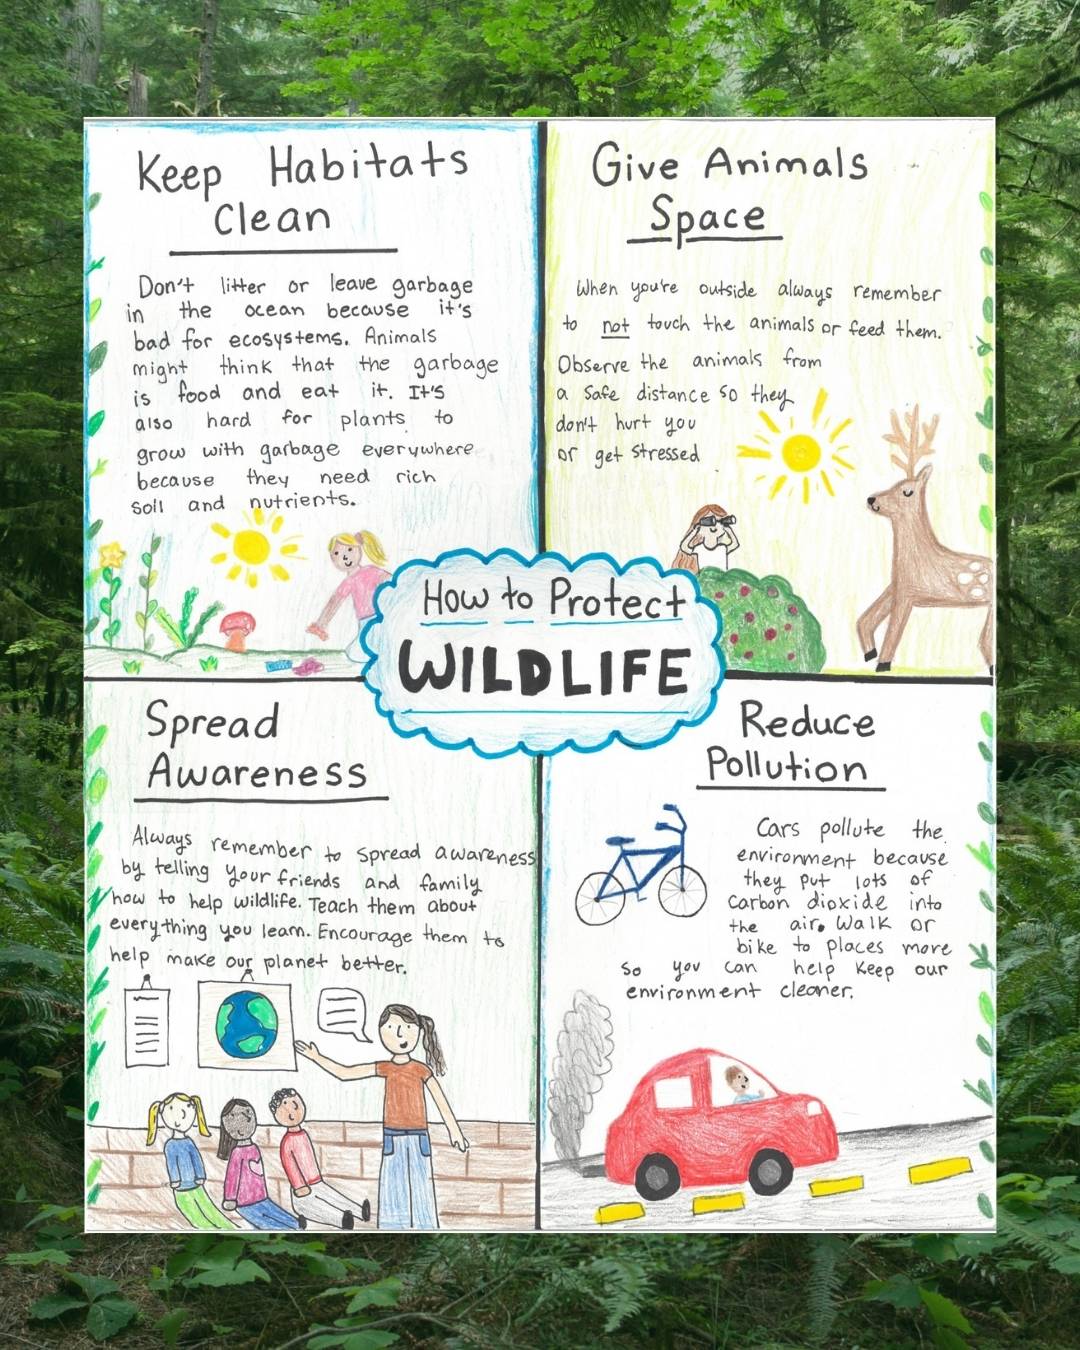 Keep Habitats
Clean
Don't litter or leave garbage
in the ocean because it's
bad for ecosystems. Animals
might think that the garbage
is food and eat it. It's
also hard for plants to
grow with garbage everywhere
because they need rich
soil and nutrients.
Give Animals
Space
When you're outside always remember
to not touch the animals or feed them.
Observe the animals from
a safe distance so they
don't hurt you
or get stressed
How to Protect
WILDLIFE
Spread
Awareness
Always remember to spread awareness
by telling your friends and family
how to help wildlife. Teach them about
everything you learn. Encourage them to
help make our planet better.
Reduce
Pollution
Cars pollute the
environment because
they put lots of
carbon dioxide into
the air. Walk or
bike to places more
so you can help keep our
environment cleaner.